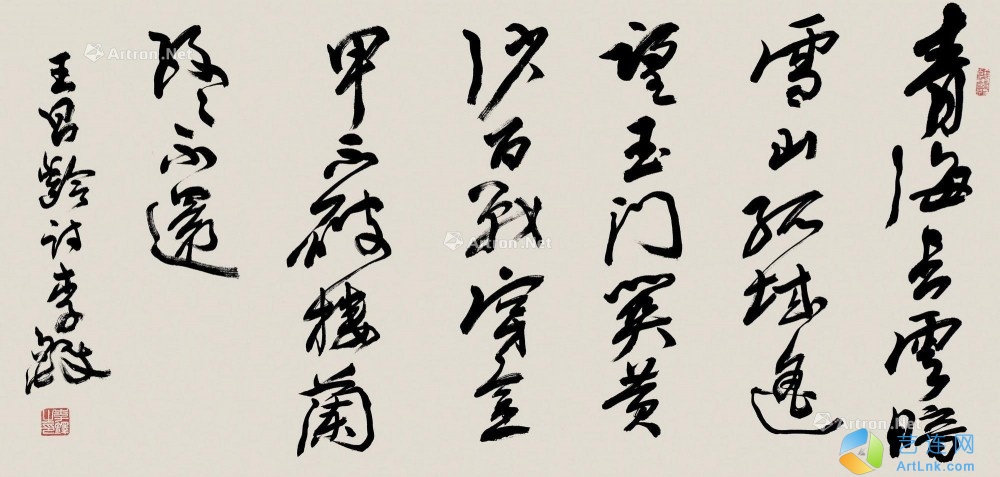 青海長雲暗
雪山孤城遙
望玉門關黄
沙百戰穿金
甲不破樓蘭
終不還
王昌齡詩李鐸
Artron.Net
Artron.Net
Artron.Net
艺连网
ArtLnk.com